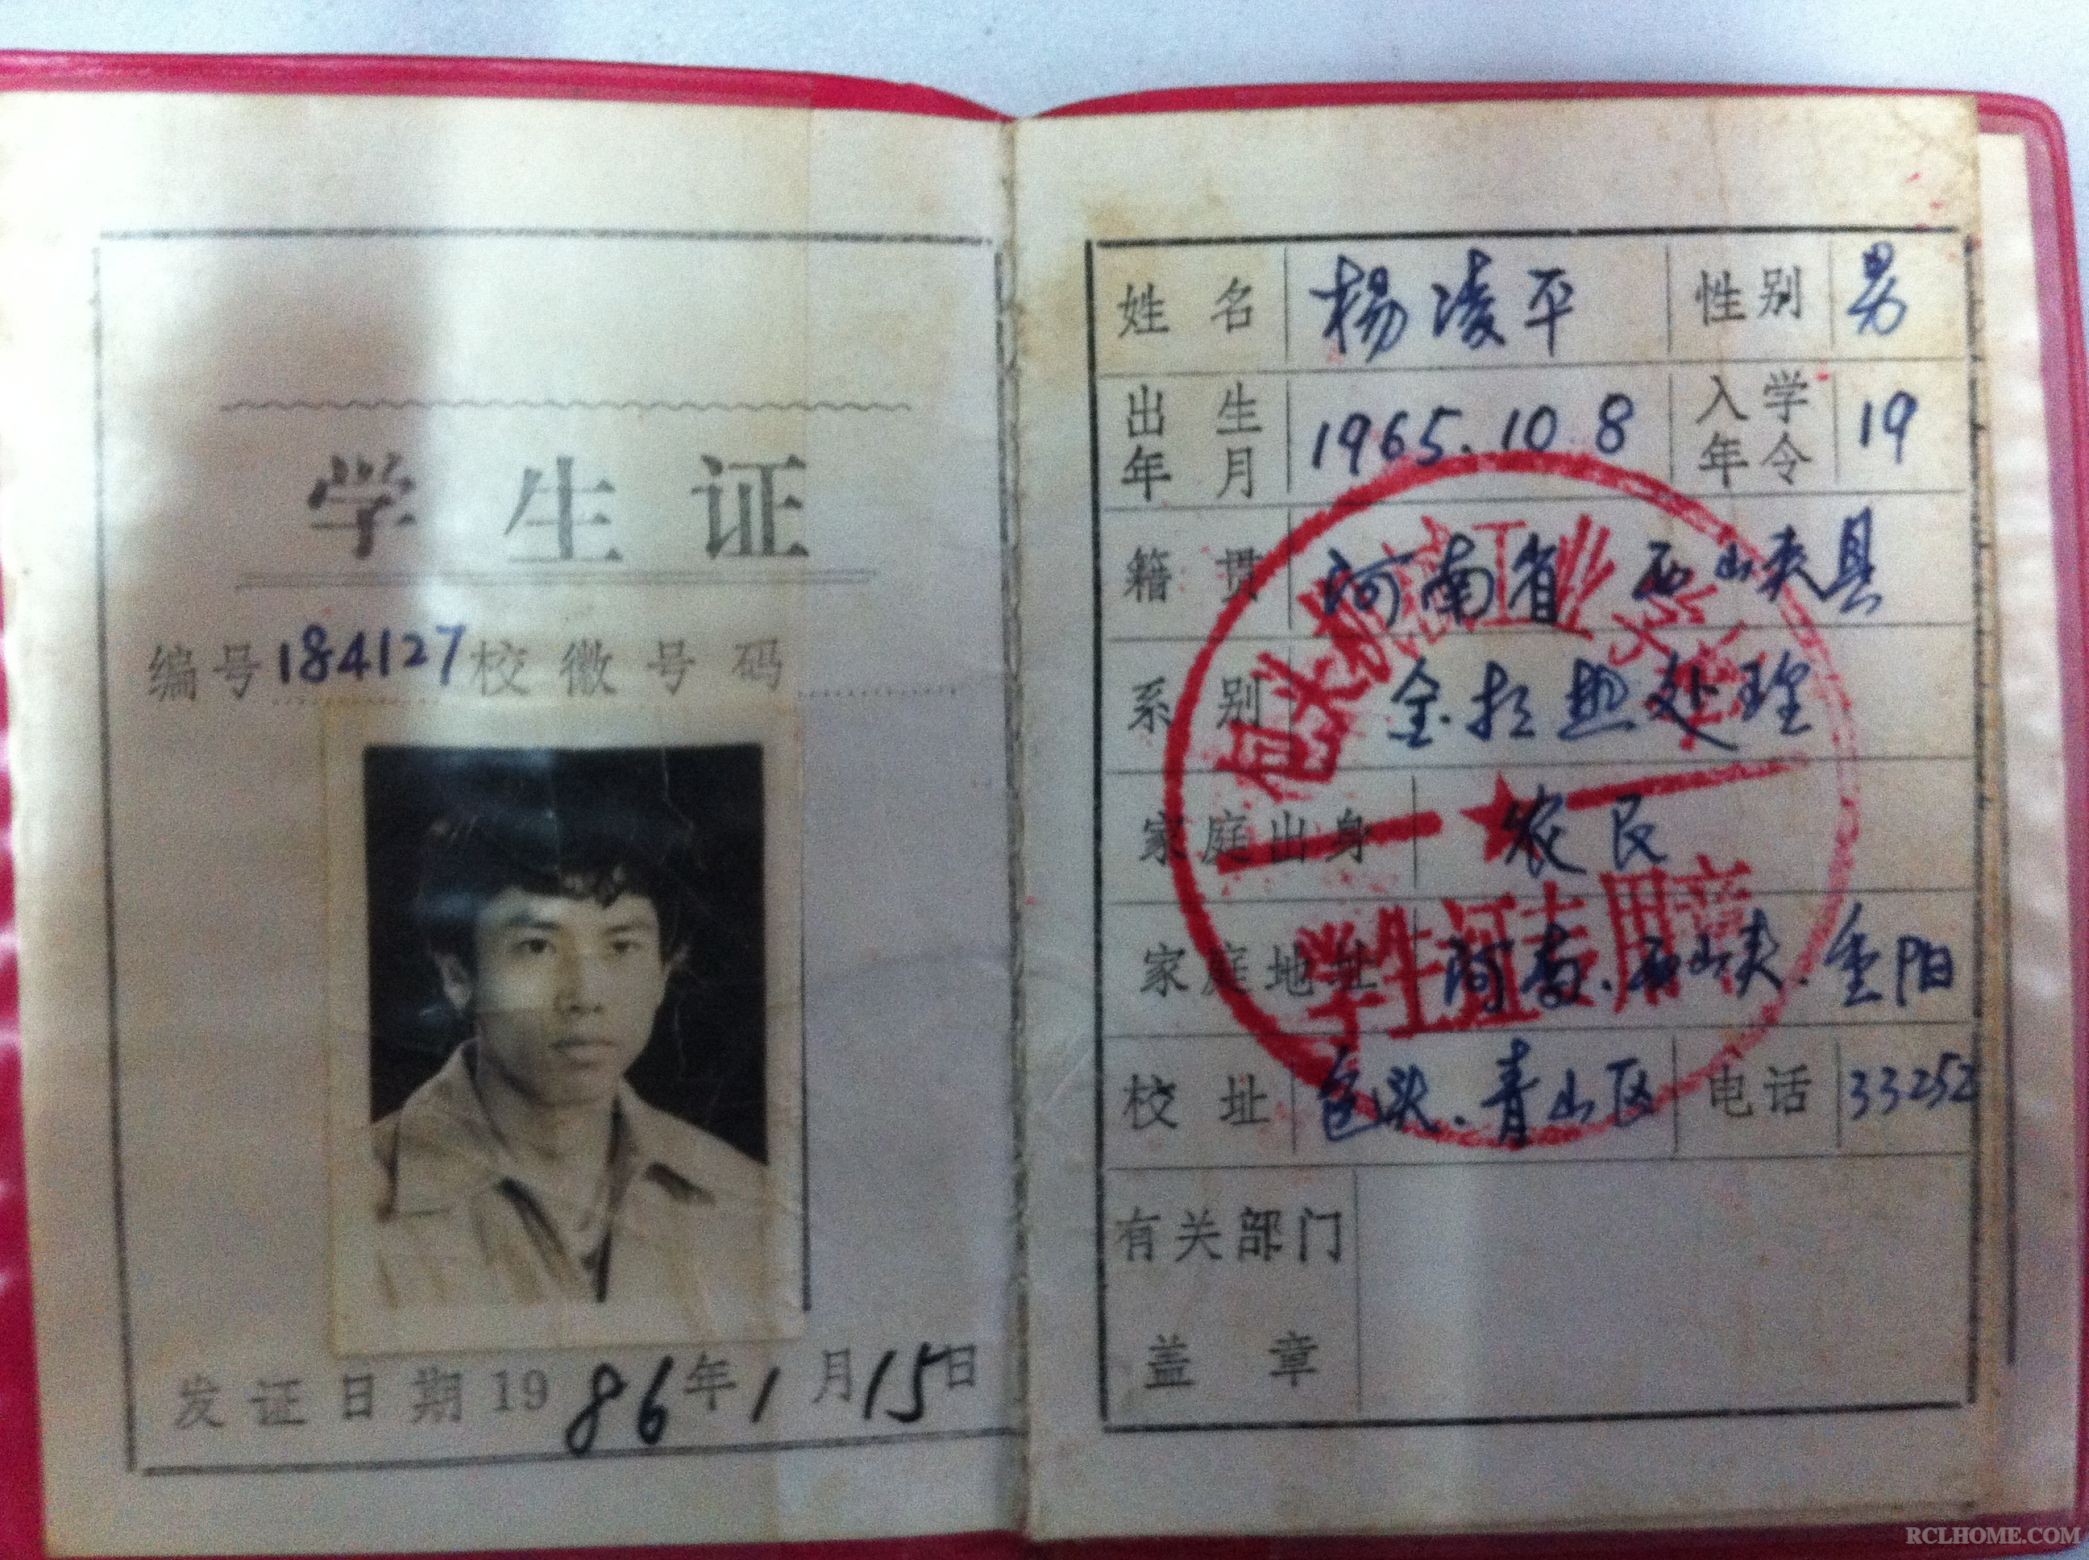 学生证
编号184127校徽号码
发证日期1986年1月15日
姓名 杨凌平 性别 男
出生年月 1965.10.8 入学年令 19
籍贯 河南省西峡县
系别 金相热处理
家庭出身 农民
家庭地址 河南.西峡.重阳
校址 包头.青山区 电话 33252
有关部门
盖章
包头机械工业学校
学生证专用章
RCLHOME.COM